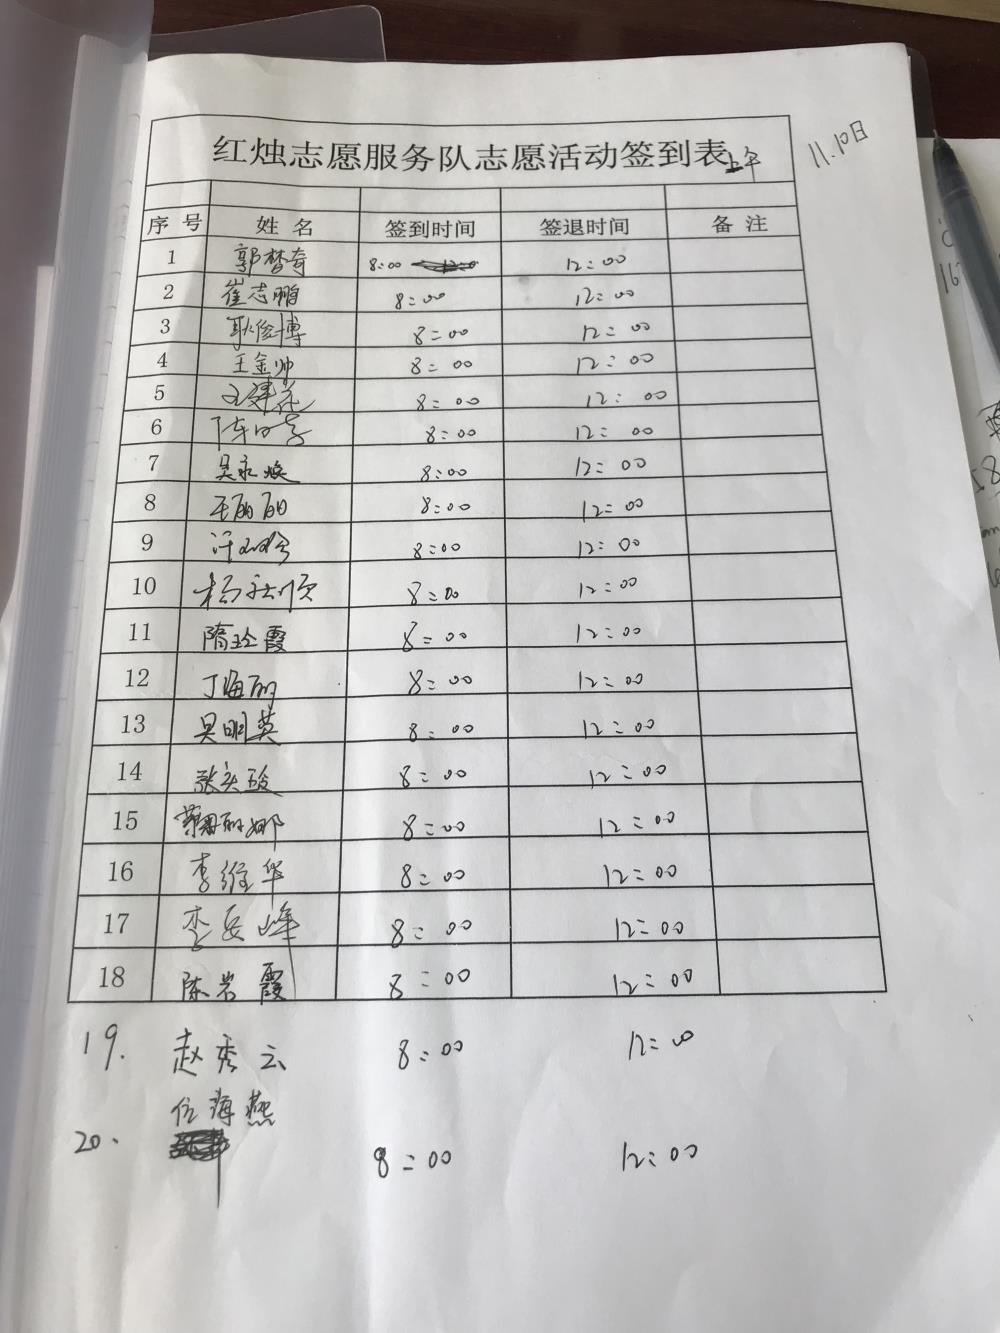 红烛志愿服务队志愿活动签到表 上午
11.10日
序号 姓名 签到时间 签退时间 备注
1 郭梦奇 8:00 12:00
2 崔志鹏 8:00 12:00
3 耿俊博 8:00 12:00
4 王金帅 8:00 12:00
5 王建花 8:00 12:00
6 陈 8:00 12:00
7 吴永焕 8:00 12:00
8 王丽丽 8:00 12:00
9 8:00 12:00
10 杨 顺 8:00 12:00
11 隋玲霞 8:00 12:00
12 丁海丽 8:00 12:00
13 吴明英 8:00 12:00
14 张 8:00 12:00
15 丽娜 8:00 12:00
16 李维华 8:00 12:00
17 李 峰 8:00 12:00
18 陈岩霞 8:00 12:00
19. 赵秀云 8:00 12:00
任海燕
20. 8:00 12:00